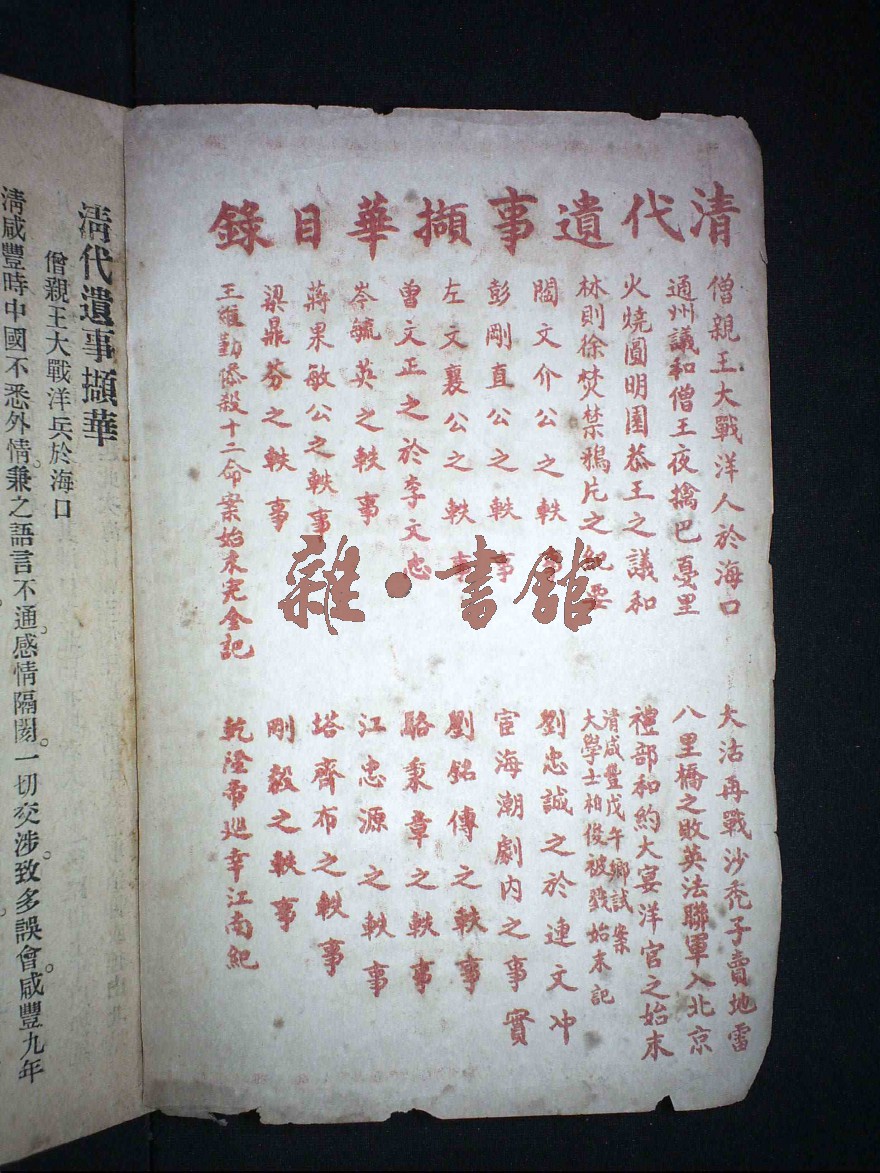 清代遺事擷華目錄
僧親王大戰洋人於海口
通州議和僧王夜擒巴戛里
火燒圓明園恭王之議和
林則徐焚禁鴉片之紀要
閻文介公之軼事
彭剛直公之軼事
左文襄公之軼事
曾文正之於李文忠
岑毓英之軼事
蔣果敏公之軼事
梁鼎芬之軼事
王維勤慘殺十二命案始末完全記
大沽再戰沙禿子賣地雷
八里橋之敗英法聯軍入北京
禮部和約大宴洋官之始末
清咸豐戊午鄉試案
大學士柏俊被戮始末記
劉忠誠之於連文冲
宦海潮劇內之事實
劉銘傳之軼事
駱秉章之軼事
江忠源之軼事
塔齊布之軼事
剛毅之軼事
乾隆帝巡幸江南紀
雜·書館
清代遺事擷華
僧親王大戰洋兵於海口
清咸豐時中國不悉外情。兼之語言不通。感情隔閡。一切交涉。致多誤會。咸豐九年